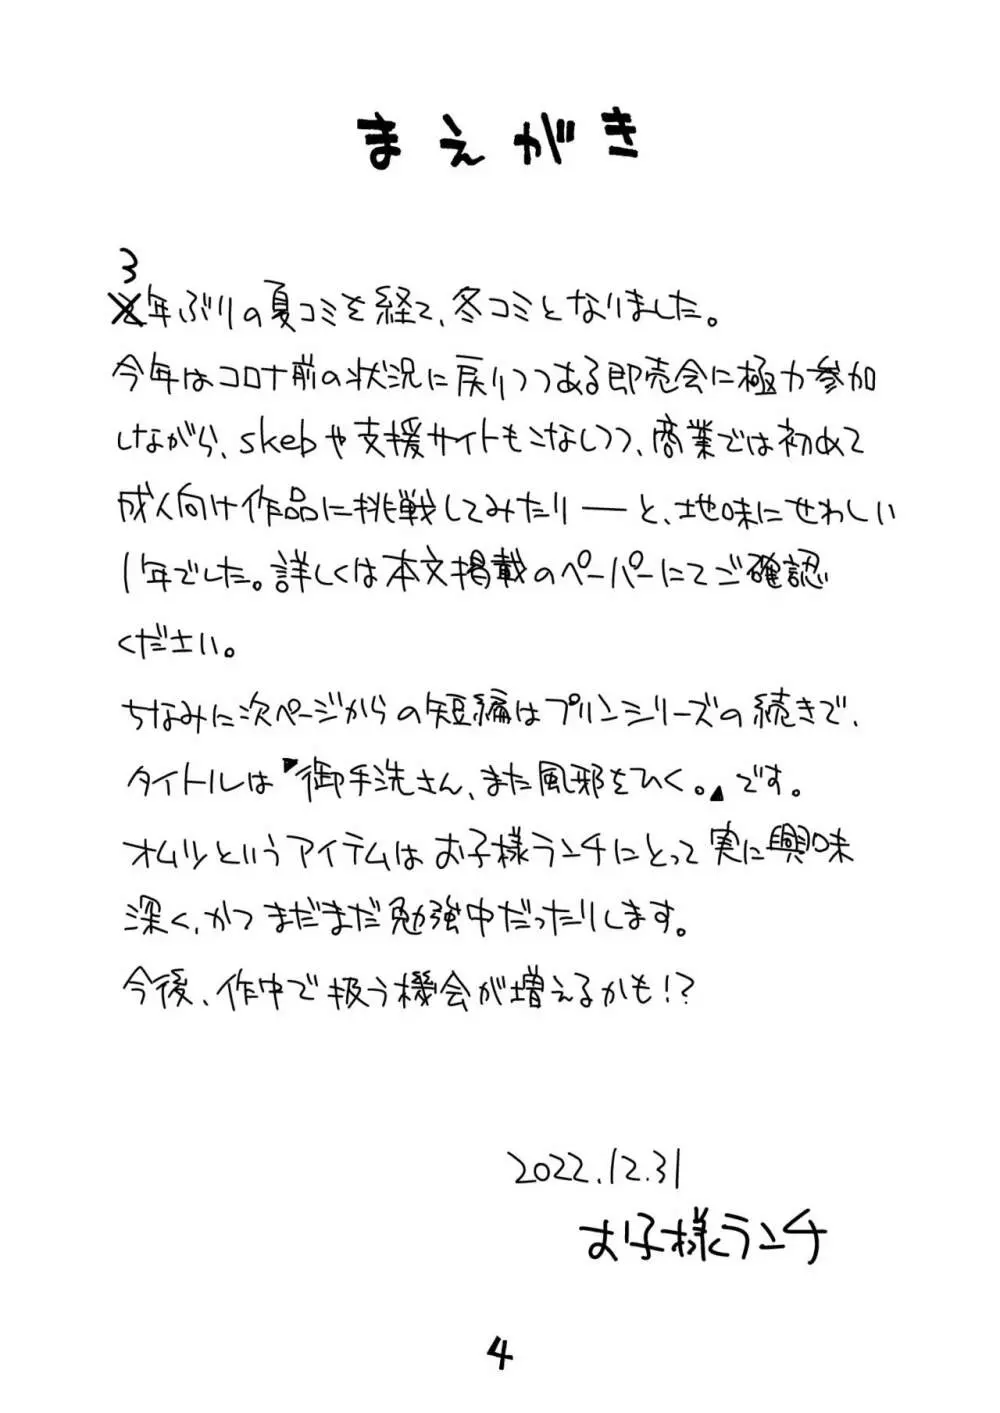 まえがき
3
年ぶりの夏コミを経て、冬コミとなりました。
今年はコロナ前の状況に戻りつつある即売会に極力参加
しながら、skebや支援サイトもこなしつつ、商業では初めて
成人向け作品に挑戦してみたり——と、地味にせわしい
1年でした。詳しくは本文掲載のペーパーにてご確認
ください。
ちなみに次ページからの短編はプリンシリーズの続きで、
タイトルは『御手洗さん、また風邪をひく。』です。
オムツというアイテムはお子様ランチにとって実に興味
深く、かつまだまだ勉強中だったりします。
今後、作中で扱う機会が増えるかも!?
2022.12.31
お子様ランチ
4